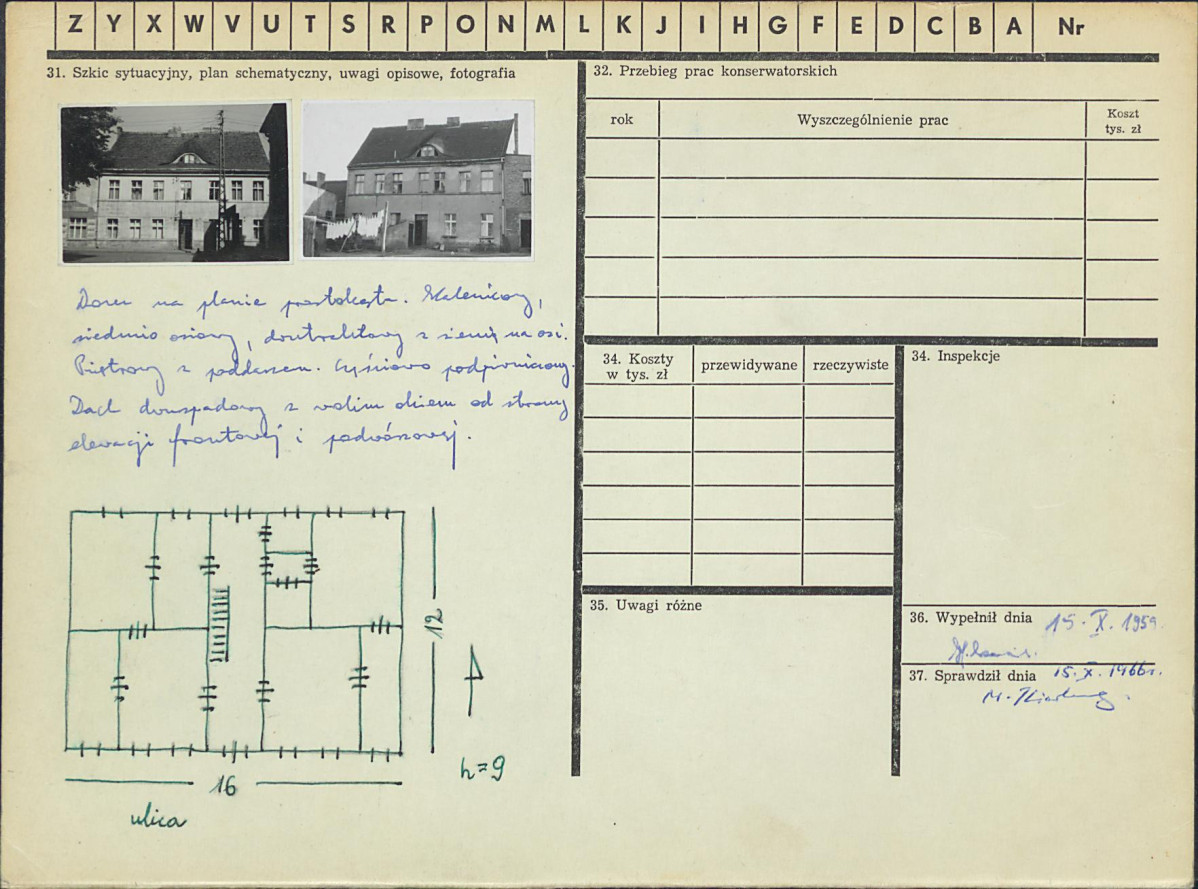 Z Y X W V U T S R P O N M L K J I H G F E D C B A Nr
31. Szkic sytuacyjny, plan schematyczny, uwagi opisowe, fotografia
Dom na planie prostokąta. Kalenicowy,
siedmio osiowy, dwutraktowy z sienią na osi.
Piętrowy z poddaszem. Częściowo podpiwniczony.
Dach dwuspadowy z wolim okiem od strony
elewacji frontowej i podwórzowej.
12
h=9
16
ulica
32. Przebieg prac konserwatorskich
rok Wyszczególnienie prac Koszt
tys. zł
34. Koszty
w tys. zł przewidywane rzeczywiste
34. Inspekcje
35. Uwagi różne
36. Wypełnił dnia 15. X. 1959
37. Sprawdził dnia 15. X. 1966r.